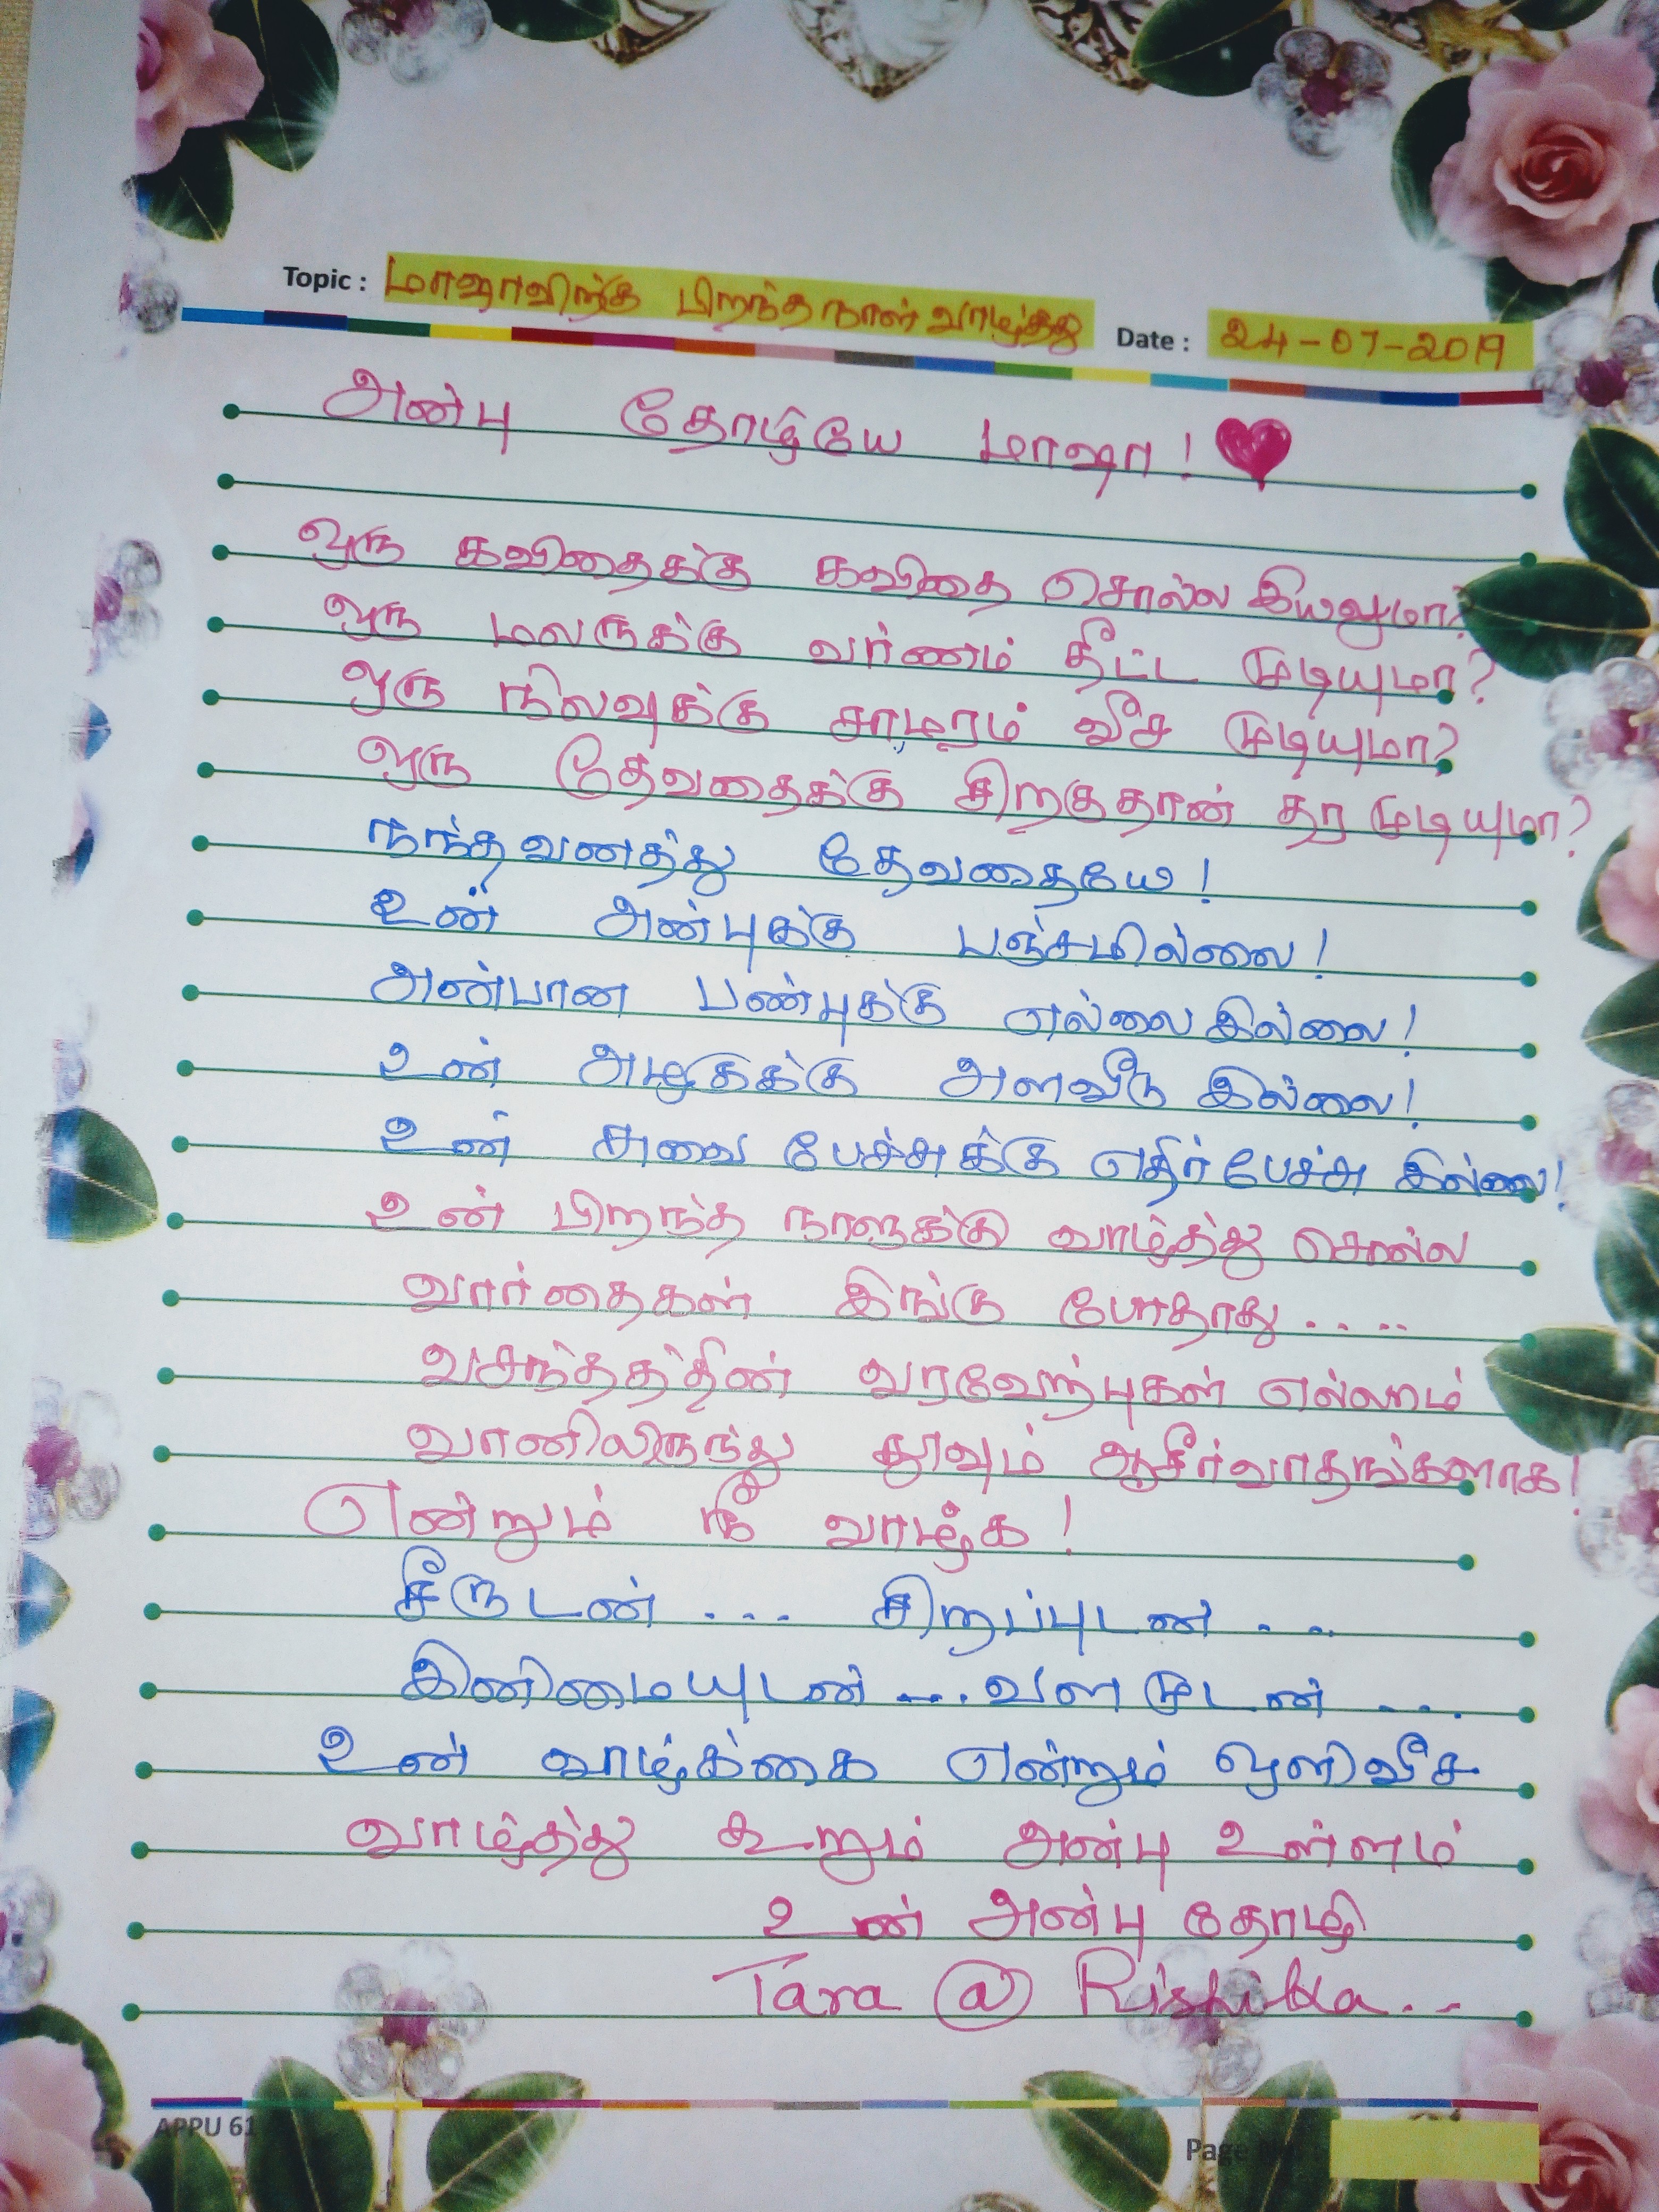 Topic : மாஷாவிற்கு பிறந்தநாள் வாழ்த்து Date : 24-07-2019
அன்பு தோழியே மாஷா! ♥
ஒரு கவிதைக்கு கவிதை சொல்ல இயலுமா?
ஒரு மலருக்கு வர்ணம் தீட்ட முடியுமா?
ஒரு நிலவுக்கு சாமரம் வீச முடியுமா?
ஒரு தேவதைக்கு சிறகுதான் தர முடியுமா?
நந்தவணத்து தேவதையே!
உன் அன்புக்கு பஞ்சமில்லை!
அன்பான பண்புக்கு எல்லை இல்லை!
உன் அழகுக்கு அளவீடு இல்லை!
உன் சுவை பேச்சுக்கு எதிர் பேச்சு இல்லை!
உன் பிறந்த நாளுக்கு வாழ்த்து சொல்ல
வார்தைகள் இங்கு போதாது.....
வசந்தத்தின் வரவேற்புகள் எல்லாம்
வானிலிருந்து தூவும் ஆசீர்வாதங்களாக!
என்றும் நீ வாழ்க!
சீருடன் ... சிறப்புடன் ...
இனிமையுடன் .... வளமுடன் ....
உன் வாழ்க்கை என்றும் ஒளிவீச
வாழ்த்து கூறும் அன்பு உள்ளம்
உன் அன்பு தோழி
Tara @ Rishikka...
APPU 61
Page